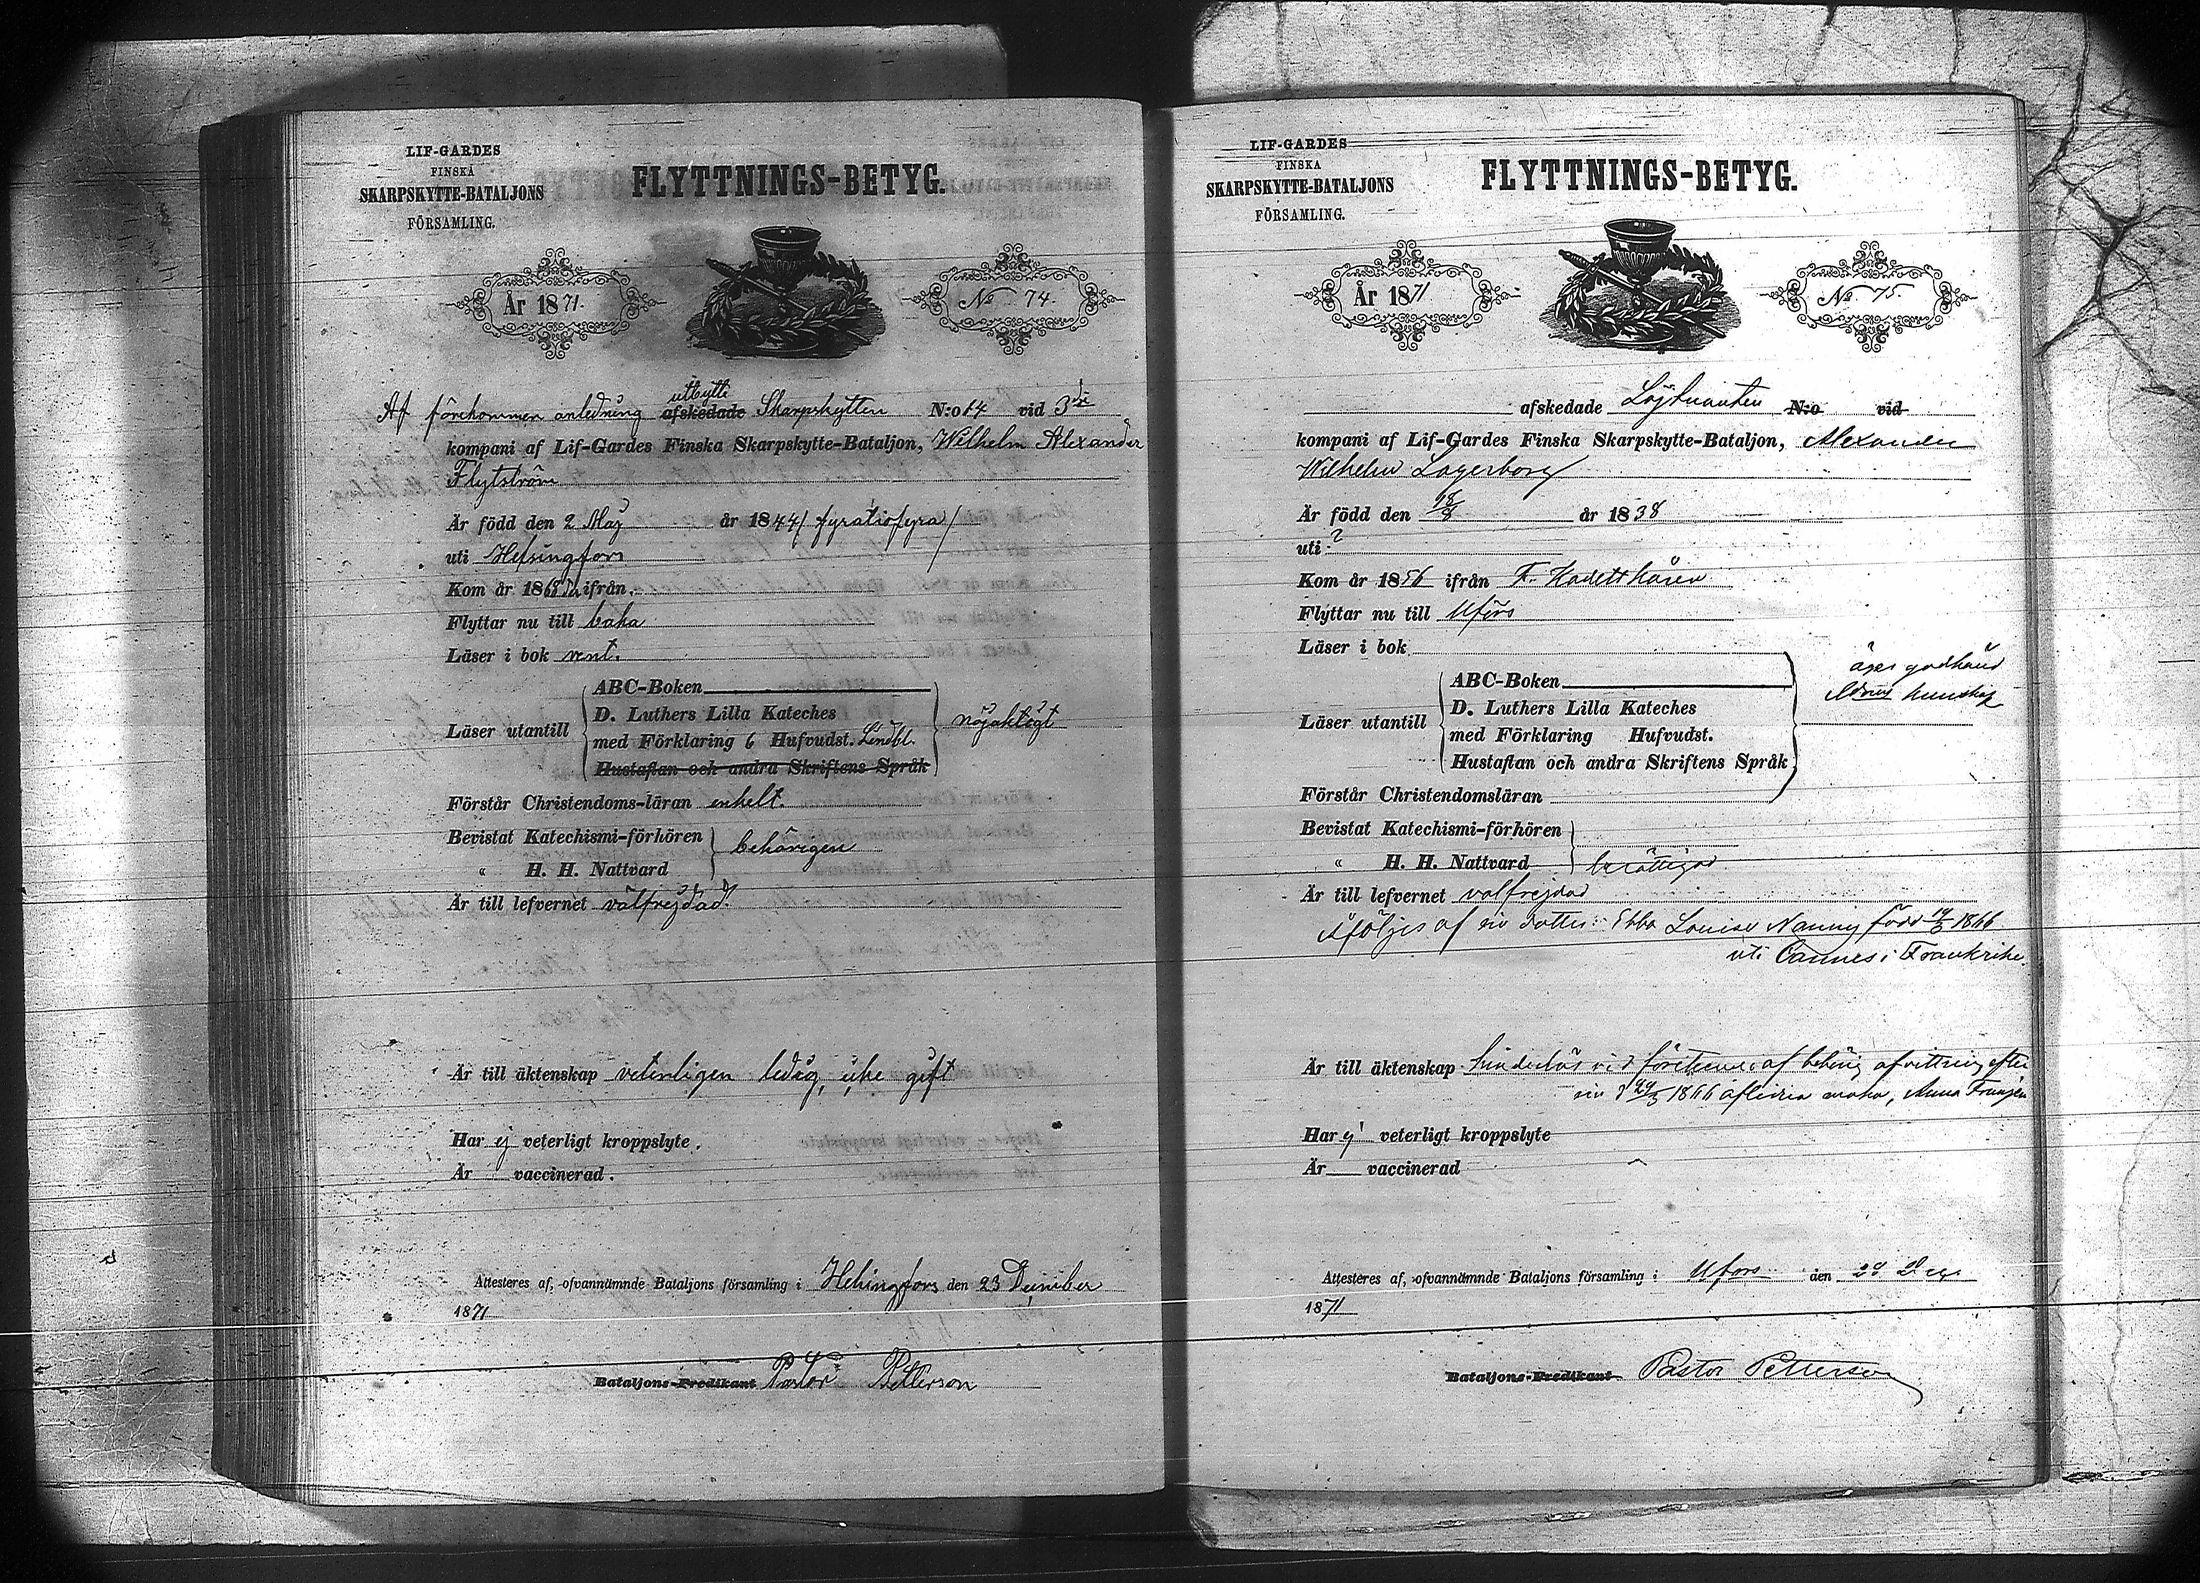 LIF-GARDES
FINSKA
SKARPSKYTTE-BATALJONS
FÖRSAMLING.
FLYTTNINGS-BETYG.
År 1871.
No 74.
utbytte
Af förekommen anledning afskedade Skarpskytten N:o 14 vid 3
kompani af Lif-Gardes Finska Skarpskytte-Bataljon, Wilhelm Alexander
Flytström
Är född den 2 Maj år 1844 / fyratiofyra /
uti Helsingfors
Kom år 186 ifrån
Flyttar nu till baka
Läser i bok rent.
ABC-Boken
Läser utantill D. Luthers Lilla Kateches
med Förklaring 6 Hufvudst. Lindbl. nöjaktigt
Hustaflan och andra Skriftens Språk
Förstår Christendoms-läran enkelt.
Bevistat Katechismi-förhören
" H. H. Nattvard behörigen
Är till lefvernet välfrejdad.
Är till äktenskap veterligen ledig, icke gift
Har ej veterligt kroppslyte.
Är vaccinerad.
Attesteres af, ofvannämnde Bataljons församling i Helsingfors den 23 December
1871
Bataljons-Predikant Pastor Petterson
LIF-GARDES
FINSKA
SKARPSKYTTE-BATALJONS
FÖRSAMLING.
FLYTTNINGS-BETYG.
År 1871
No 75.
afskedade Löjtnanten N:o vid
kompani af Lif-Gardes Finska Skarpskytte-Bataljon, Alexander
Wilhelm Lagerborg
Är född den 18/8 år 1838
uti ?
Kom år 1856 ifrån F. Kadettkåren
Flyttar nu till Hfors
Läser i bok
ABC-Boken
äger godkänd
Läser utantill D. Luthers Lilla Kateches kunskap
med Förklaring Hufvudst.
Hustaflan och andra Skriftens Språk
Förstår Christendomsläran
Bevistat Katechismi-förhören
" H. H. Nattvard berättigad
Är till lefvernet välfrejdad
Åföljes af en dotter: Ebba Louise Nanny född 1866
uti Cannes i Frankrike
Är till äktenskap hinderlös vid företeende af behörig afvittring efter
sin d 29/3 1866 aflidna maka, Anna
Har ej veterligt kroppslyte
Är vaccinerad
Attesteres af, ofvannämnde Bataljons församling i Hfors den 29 Dec.
1871
Bataljons-Predikant Pastor Petterson